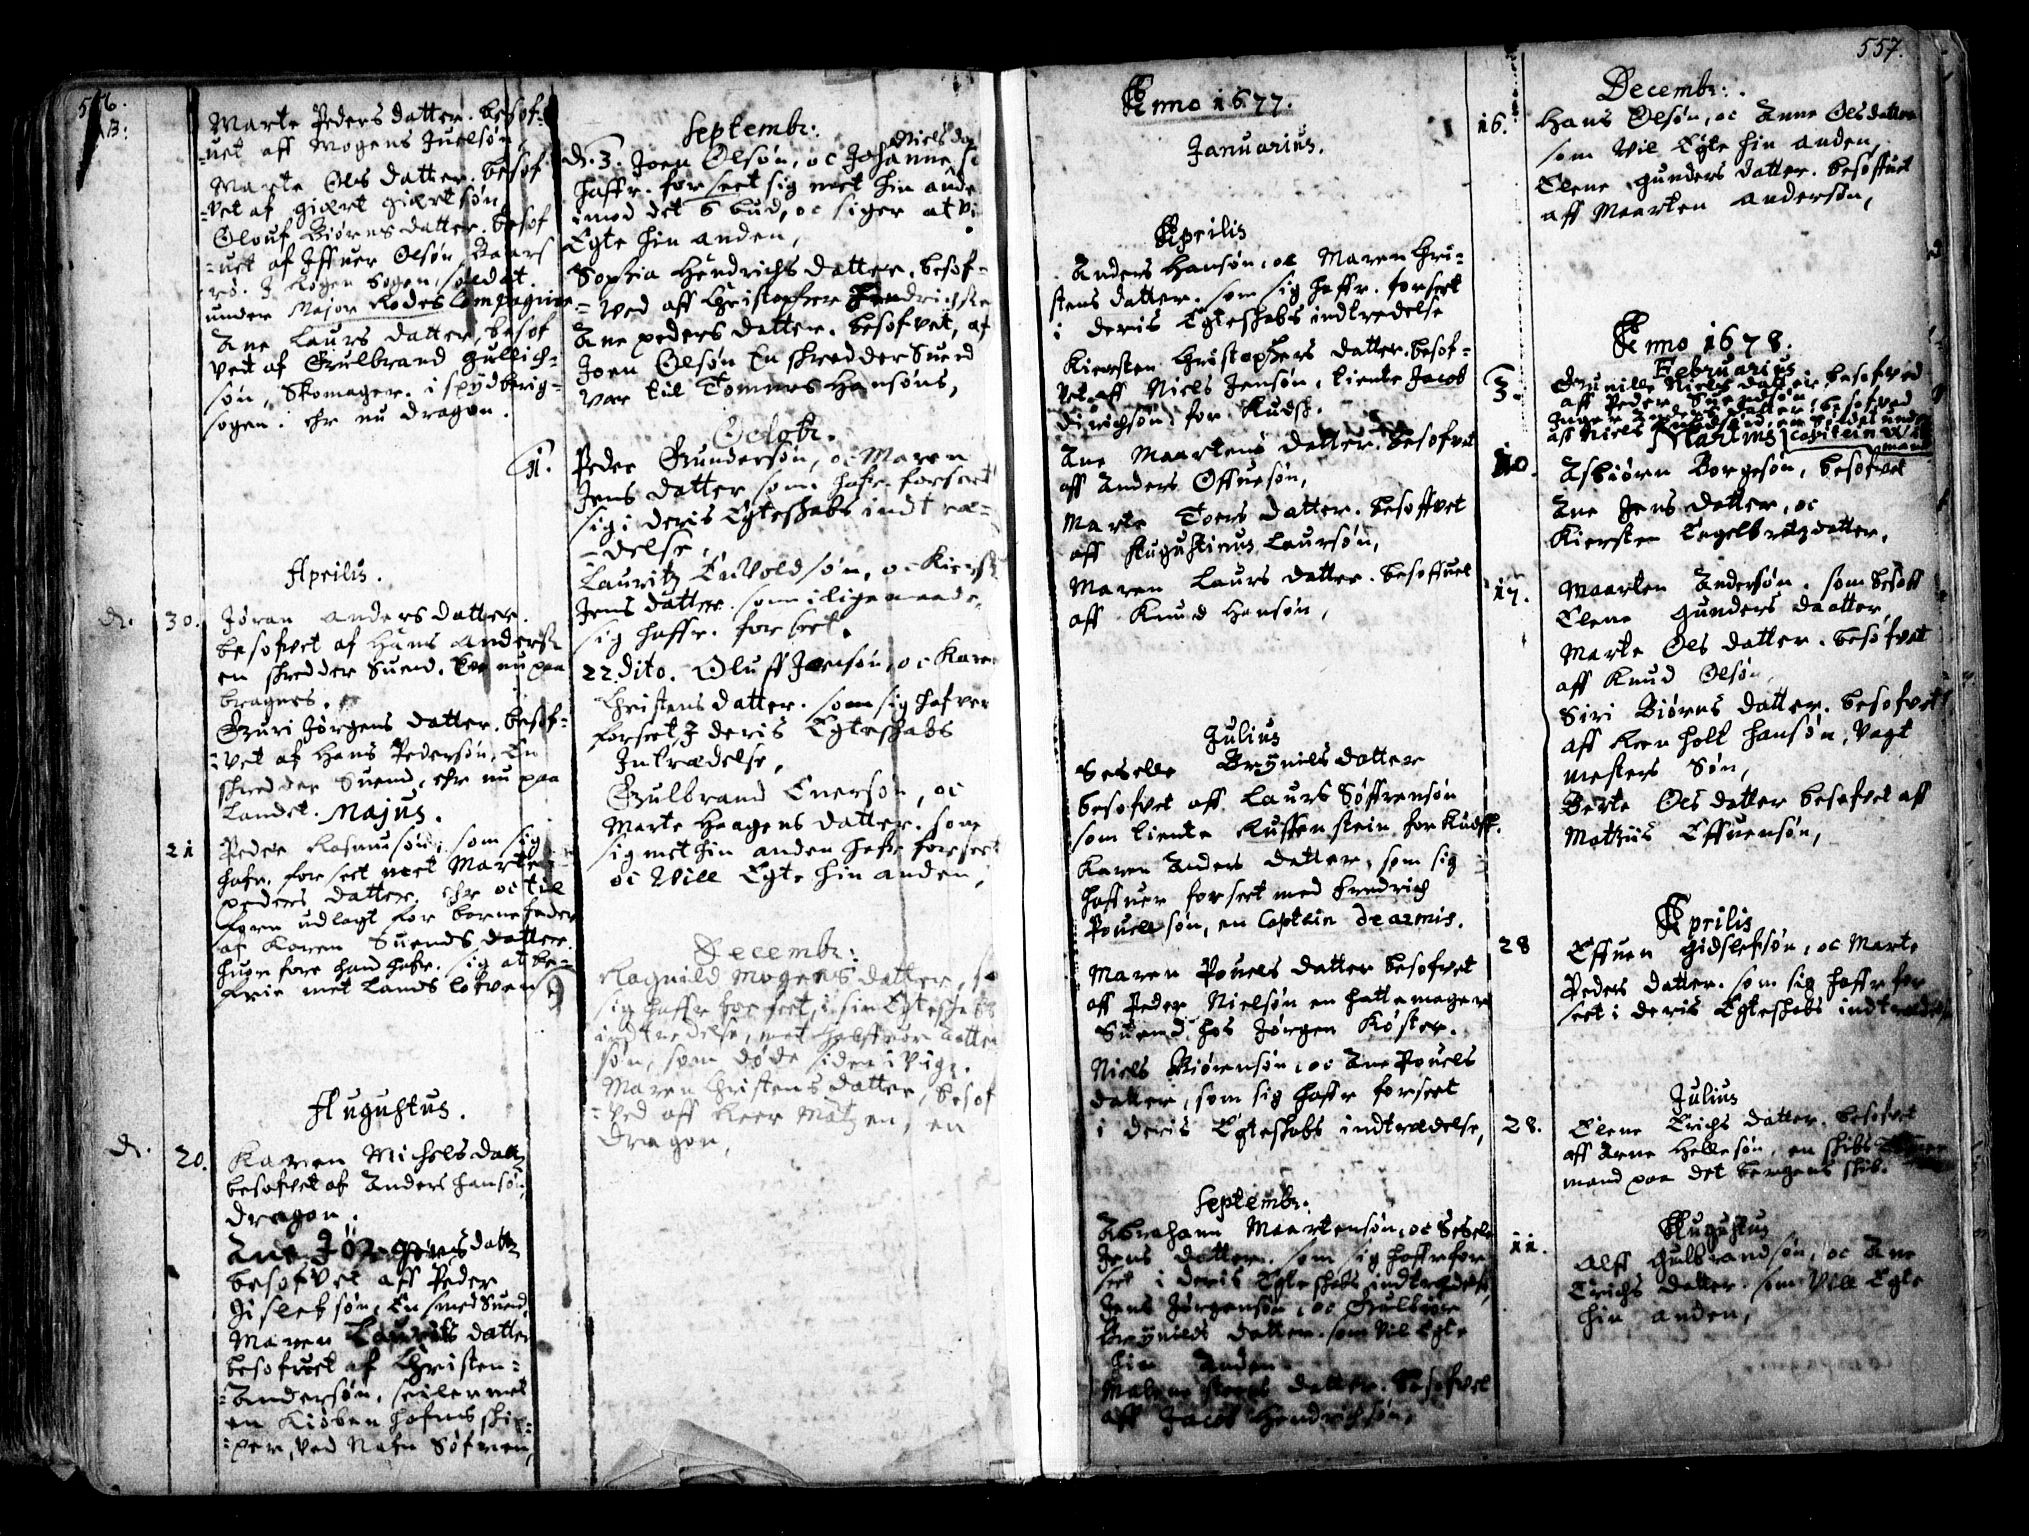 Marte Peders datter. besof-
-uet aff Mogens Juelsøn,
Marte Ols datter. besof
-vet af giært giærtsøn
Olouf Biørns datter. besof
-uet af Iffuer Olsøn Baars
rö. J Røgen Sogen, soldat.
under Major Rodes Compagnie
Ane Laurs datter, besof
vet af Gulbrand Gullich-
søn, Skomager. i spydberig-
sogen. ehr nu dragon.
Aprilis.
d. 30. Jøran anders datter.
besofvet af Hans anders
en skredder Suend. ehr nu paa
bragnes.
Guri Jørgens datter. besof-
-vet af Hans Pedersøn, En
skredder Suend, ehr nu paa
Landet. Majus.
21 Peder Rasmusøn, som sig
hafr. forseet met Marte
peders datter. ehr oc til
forn udlagt for barnefader
af Karen Suends datter.
huor fore hand hafr. sig at be-
frie met Lands loven
Augustus.
d. 20. Karen Michels datt
besofvet af Anders hansøn
dragon.
Ane Jørgens datt
besofvet aff Peder
Gislefsøn, En smed Suend.
Maren Laurits datter
besofvet af Christen-
-Andersøn, seiler met
en Kiøbenhafns skip-
-per, ved Nafn Søfren,
Septembr.
Niels da
d. 3. Joen Olsøn, oc Johanne
haffr. forseet sig met hin ande
imod det 6 bud, oc siger at vi
Egte hin anden,
Sophia Hendrichs datter. besof-
-ved aff Christopher Hendrichsen
Ane peders datter. besofvet, af
Joen Olsøn En skredder Suend
var til Tommes Hansøns,
Octobr.
11. Peder Gundersøn, oc Maren
Jens datter som hafr. forseet
sig i deris Egteskabs indtræ-
-delse,
Lauritz Envoldsøn, oc Kierst
Jens datter. som i lige maade
sig haffr. forseet.
22 dito. Oluff Jensøn, oc Karen
Christens datter. som sig hafver
forseet, J deris Egteskabs
Intrædelse,
Gulbrand Enersøn, oc
Marte Haagens datter. som
sig met hin anden hafr forseet
oc Vill Egte hin anden,
Decembr:
Ragnild Mogens datter, so
sig haffr forseet, i sin Egteskabs
indtredelse, met Halffuor Aatten
søn, som døde siden i Viig.
Maren Christens datter, besof
-ved aff Peer Matzen, en
dragon,
Anno 1677.
Januarius.
Aprilis
Anders Hansøn, oc Maren Chri-
stens datter. som sig haffr. forseet
i deris Egteskabs indtredelse
Kiersten Christophers datter. besof-
vet aff Niels Jensøn, tiente Jacob
Dirichsøn for Kudsk.
Ane Maartens datter. besofvet
aff Anders Offuesøn,
Marte Toers datter. besoffvet
aff Augustinus Laursøn,
Maren Laurs datter. besoffuet
aff Knud Hansøn,
Julius
Seselle Brynils datter
besofvet aff Laurs Søffrensøn
som tiente Ruffenstein for Kudsk.
Karen Anders datter, som sig
haffuer forseet med fredrich
Pouelsøn, en Captein de armis.
Maren Pouels datter besofvet
aff Peder Nielsøn en hattemager
Suend hos Jørgen Køster.
Niels Biørensøn, oc Ane Pouels
datter, som sig haffr forseet
i deris Egteskabs indtrædelse,
Septembr.
Abraham Maartensøn, oc Sesele
Jens datter. som sig haffr for
seet i deris Egteskabs indtrædelse,
Jens Jørgensøn, oc Gulbior
Brynilds datter. som vil Egte
hin anden
datter. besofvet
aff Jacob Hendrichsøn,
557.
Decembr:
16. Hans Olsøn, oc Anne Olsdatter
som vil Egte hin anden,
Elene gunders datter. besoffuet
aff Maarten andersøn,
Anno 1678.
Februarius
3. Gunild Niels datter, besofved
aff Peder Suendsøn
Inger Anders datter, besofved
aff Niels
10. Asbiørn Borgesøn, besofvet
Ane Jens datter, oc
Kiersten Engelbretzdatter,
17. Maarten Andersøn. som besoff
Elene Gunders daatter
Marte Ols datter. besofvet
aff Knud Olsøn,
Siri Biørns datter. besofvet
aff Reenholt Hansøn, vagt
mesters Søn,
Berte Ols datter besofvet aff
Mathiis Effuensøn,
Aprilis
28 Effuen Gidslefsøn, oc Marte
Peders datter. som sig haffr for
seet i deris Egteskabs indtrædelse
Julius
28. Elene Erichs datter. besofvet
aff Arne Hellesøn, en skibs
mand paa det bergens skib.
Augustus
11. Olff Gulbrandsøn, oc Ane
Erichs datter. som Vill Egte
hin anden,